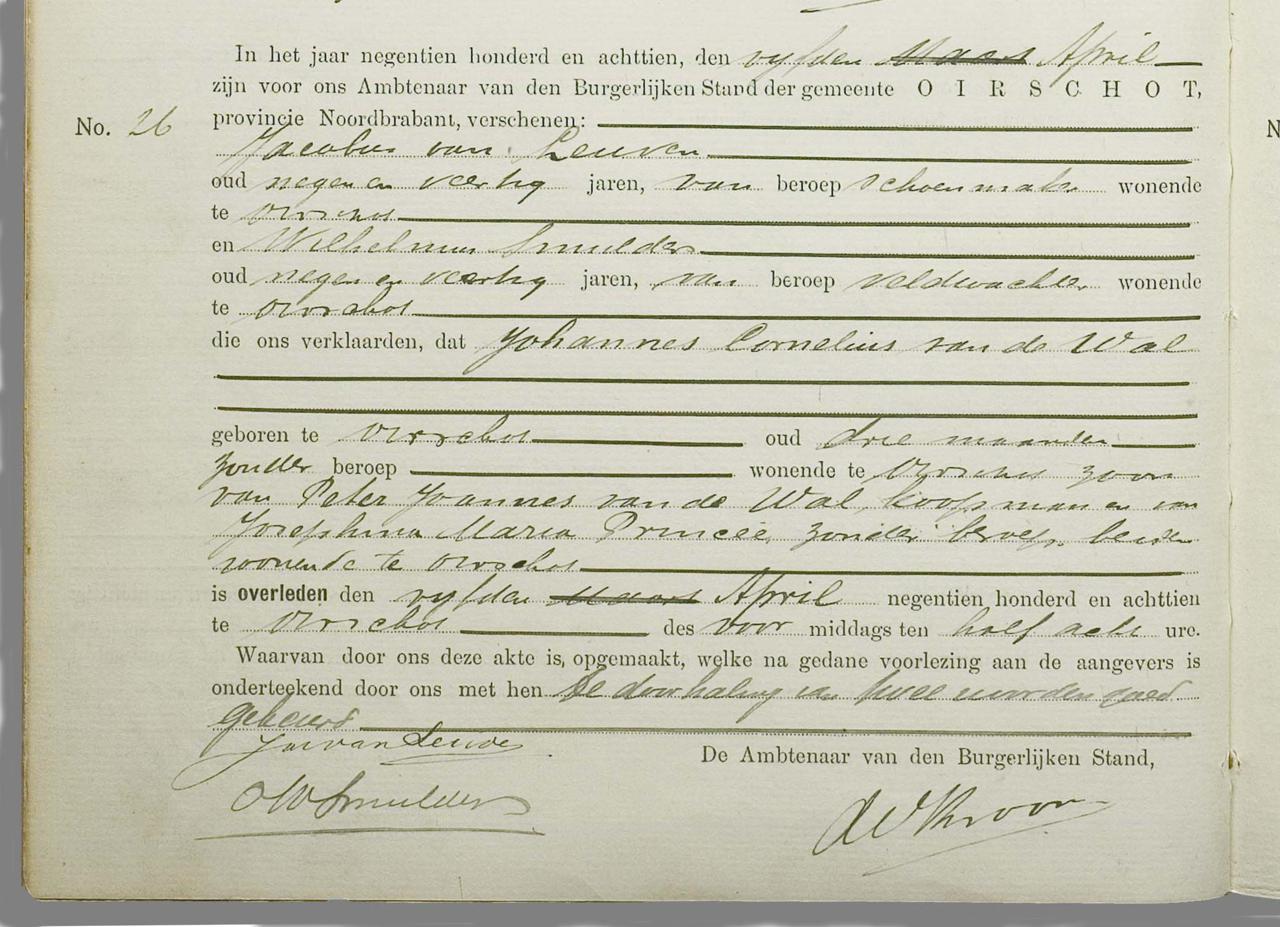 In het jaar negentien honderd en achttien, den vyfden Maart April
zijn voor ons Ambtenaar van den Burgerlijken Stand der gemeente OIRSCHOT,
No. 26 provincie Noordbrabant, verschenen:
Jacobus van Leuven
oud negen en veertig jaren, van beroep schoenmaker wonende
te Oirschot
en Wilhelmus Smulders
oud negen en veertig jaren, van beroep veldwachter wonende
te Oirschot
die ons verklaarden, dat Johannes Cornelius van de Wal
geboren te Oirschot oud drie maanden
zonder beroep wonende te Oirschot zoon
van Peter Joannes van de Wal, koopman en van
Josephina Maria Princée, zonder beroep, beiden
wonende te Oirschot
is overleden den vyfden Maart April negentien honderd en achttien
te Oirschot des voor middags ten half acht ure.
Waarvan door ons deze akte is, opgemaakt, welke na gedane voorlezing aan de aangevers is
onderteekend door ons met hen De doorhaling van twee woorden goed
gekeurd
J van Leuven
De Ambtenaar van den Burgerlijken Stand,
Smulders
N